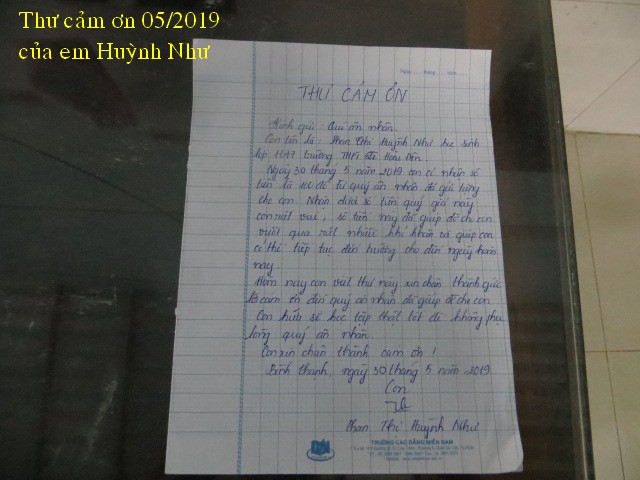 Thư cảm ơn 05/2019
của em Huỳnh Như
Ngày ..... tháng ..... năm .....
THƯ CẢM ƠN
Kính gửi Quí ân nhân
Con tên là: Phan Thị Huỳnh Như học sinh
lớp trường THPT
Ngày 30 tháng 5 năm 2019 con có nhận số
tiền là 100 đô từ quý ân nhân đã gửi tặng
cho con. Nhận được số tiền quý giá này
con rất vui, số tiền này đã giúp đỡ cho con
vượt qua rất nhiều khó khăn và giúp con
có thể tiếp tục đến trường cho đến ngày hôm
nay
Hôm nay con viết thư này xin chân thành
cảm ơn đến quý ân nhân đã giúp đỡ cho con
Con hứa sẽ học tập thật tốt để không phụ
lòng quý ân nhân.
Con xin chân thành cảm ơn!
Bình thạnh, ngày 30 tháng 5 năm 2019
Con
Phan Thị Huỳnh Như
TRƯỜNG CAO ĐẲNG MIỀN NAM